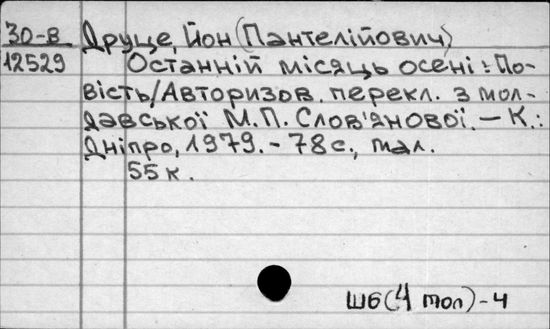 30-в Друце, Йон (Пантелійович)
12529 Останній місяць осені: По-
вість/Авторизов. перекл. з мол-
давської М.П. Слов'янової. – К.:
Дніпро, 1979. – 78 с., мал.
55 к.
Ш6(4 мол)-4